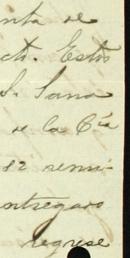 nta de
cto. Estos
S. Sana
de la Cía
se remi-
ntregado
regrese